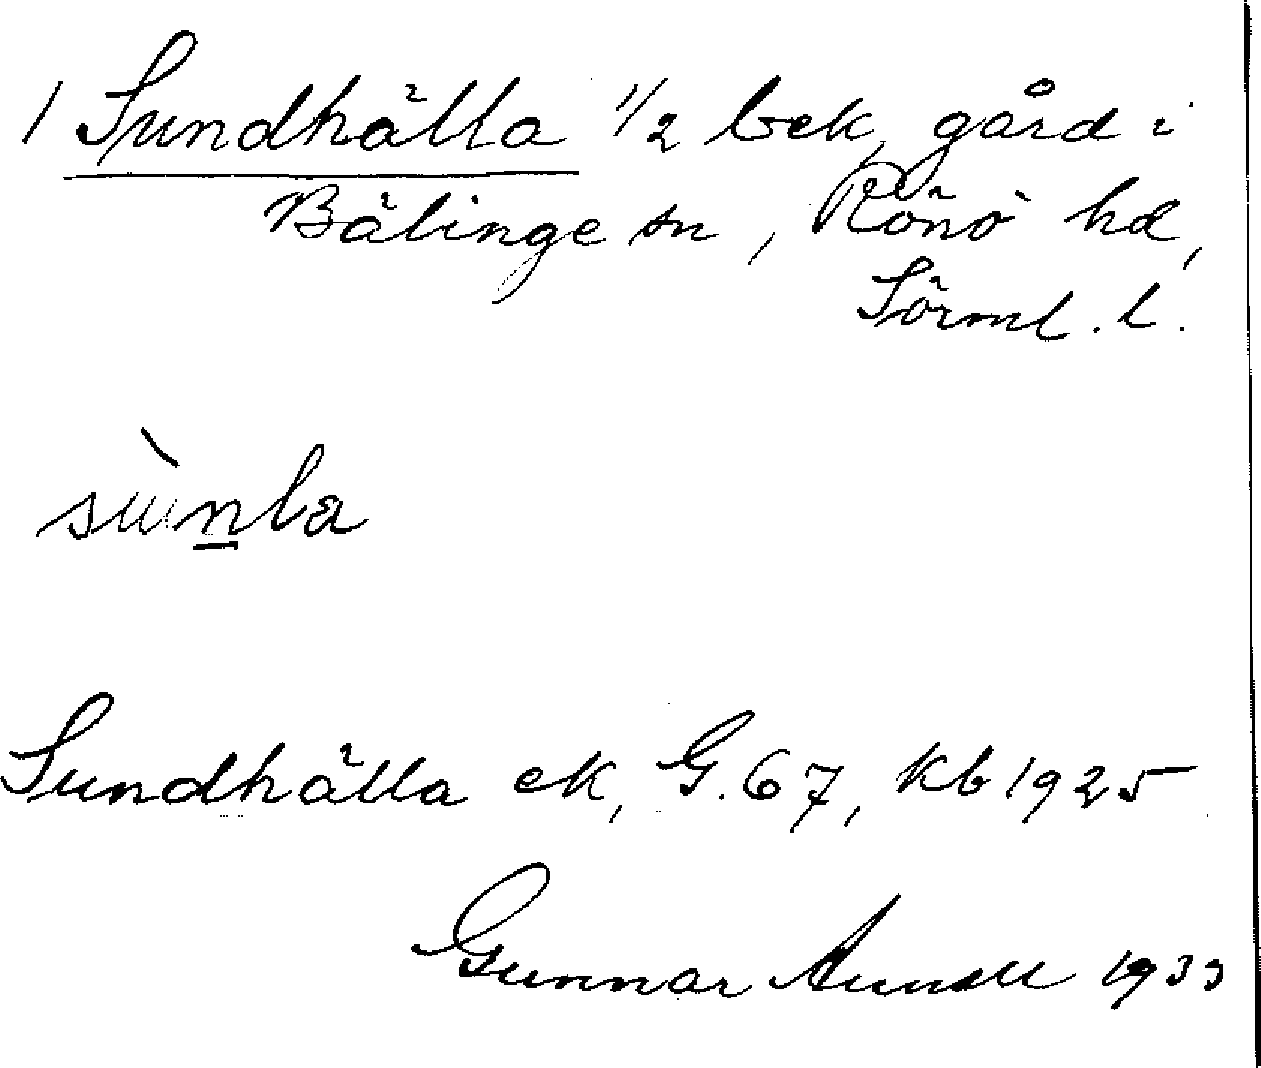 1 Sundhälla 1/2 bek, gård i
Bälinge sn, Rönö hd,
Sörml. l.
sùn̲la
Sundhälla ek, G. 67, kb 1925
Gunnar 1933